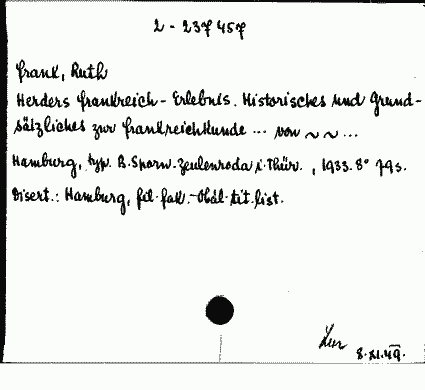 2 - 237 457
Frank, Ruth
Herders Frankreich - Erlebnis. Historisches und Grund-
sätzliches zur Frankreichkunde ... von ~ ~ ...
Hamburg, typ. B. Sporn - Zeulenroda i. Thür. , 1933. 8° 79 s.
Disert.: Hamburg, fil. fak. - Obál. tit. list.
8. XI. 49.